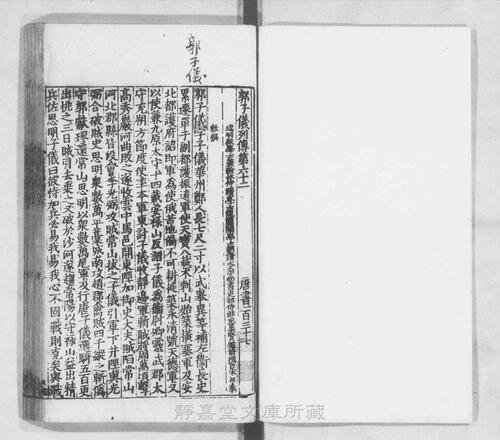 郭子儀
郭子儀列傳第六十二
唐書一百三十七
敕撰
郭子儀字子儀華州鄭人長七尺二寸以武舉異等補左衛長史
累遷單于副都護振遠軍使天寶八載木剌山始築橫塞軍及安
北都護府詔即軍為使俄苦地偏不可耕徙築永清號天德軍又
以使兼九原太守十四載安祿山反詔子儀為衛尉卿靈武郡太
守充朔方節度使率本軍東討子儀收靜邊軍斬賊將周萬頃擊
高秀巖河曲敗之遂收雲中馬邑開東陘加御史大夫賊陷常山
河北郡縣皆沒會李光弼攻賊常山拔之子儀引軍下井陘與光
弼合破賊史思明眾數萬平藁城南攻趙郡禽賊四千縱之斬偽
守郭獻璆還常山思明以眾數萬尾軍及行唐子儀選騎五百更
出挑之三日賊引去乘之又破於沙河遂趨常陽以守祿山益出精
兵佐思明子儀曰彼恃加兵必易我易我心不固戰則克矣與戰
靜嘉堂文庫所藏